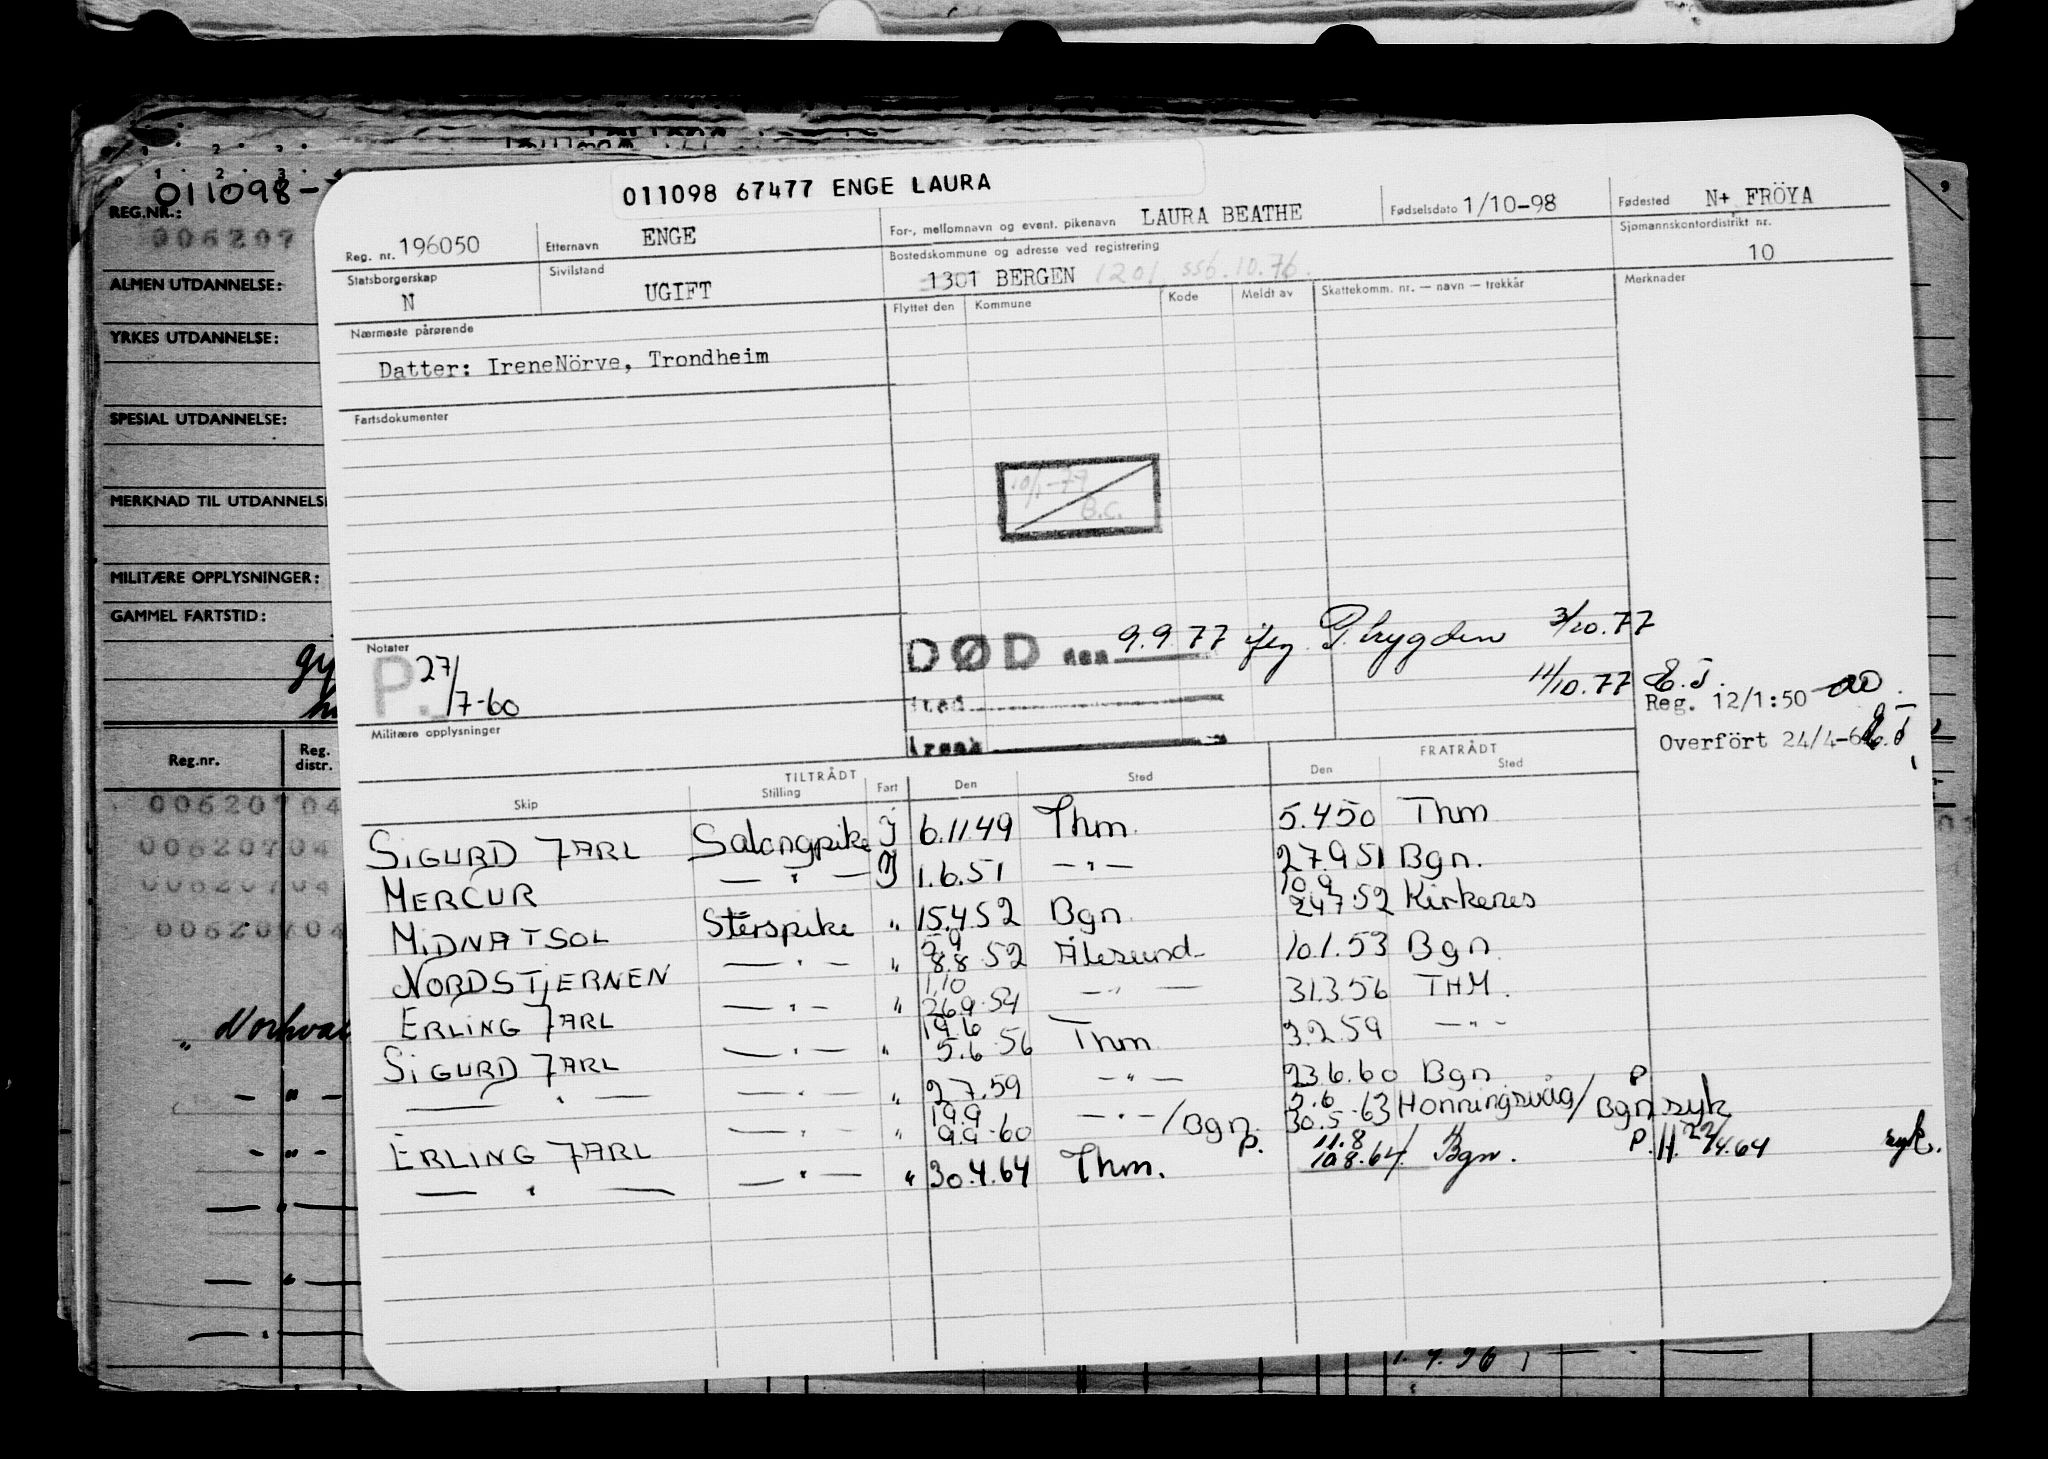 011098-
REG.NR.:
006207
ALMEN UTDANNELSE:
YRKES UTDANNELSE:
SPESIAL UTDANNELSE:
MERKNAD TIL UTDANNELSE
MILITÆRE OPPLYSNINGER:
GAMMEL FARTSTID:
Reg.nr. Reg. distr.
00620704
00620704
00620704
00620704
011098 67477 ENGE LAURA
Reg. nr. 196050 Etternavn ENGE For-, mellomnavn og event. pikenavn LAURA BEATHE Fødselsdato 1/10-98 Fødested N+ FRÖYA
Statsborgerskap N Sivilstand UGIFT Bostedskommune og adresse ved registrering 1301 BERGEN 1201 ssb.10.76. Sjømannskontordistrikt nr. 10
Nærmeste pårørende Flyttet den Kommune Kode Meldt av Skattekomm. nr. — navn — trekkår Merknader
Datter: IreneNörve, Trondheim
Fartsdokumenter
10/1-77
B.C.
Notater
P. 27/7-60
DØD den 9.9.77 iflg. P. trygden 3/10.77
sted 11/10.77 E.J.
Reg. 12/1:50
Militære opplysninger
Overfört 24/4-6
TILTRÅDT FRATRÅDT
Skip Stilling Fart Den Sted Den Sted
SIGURD JARL Salongpike J 6.11.49 Thm. 5.4 50 Thm
MERCUR — " — J 1.6.51 — " — 27.9 51 Bgn.
MIDNATSOL Sterspike " 15.4 52 Bgn. 10.9 24.7.52 Kirkenes
NORDSTJERNEN — " — " 5.9 8.8 52 Ålesund 10.1.53 Bgn.
ERLING JARL — " — " 1.10 26.9.54 — " — 31.3.56 THM.
SIGURD JARL — " — " 19.6 5.6 56 Thm 3.2.59 — " —
— " — — " — " 2.7.59 — " — 23.6.60 Bgn
ERLING JARL — " — " 19.9 9.9.60 — " — / Bgn. P. 5.6 30.5.63 Honningsvåg / Bgn P syk
— " — — " — " 30.4.64 Thm. 11.8 10.8.64 / Bgn. P. H. 22/4.64 syk.